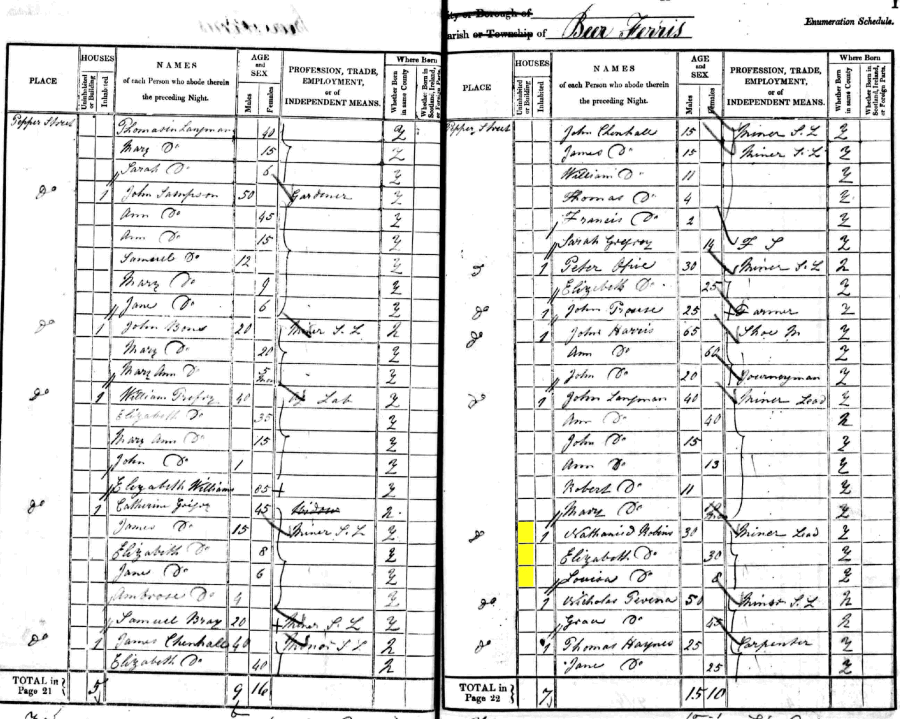 City or Borough of
Parish or Township of Beer Ferris
Enumeration Schedule.
PLACE
HOUSES
Uninhabited or Building
Inhabited
NAMES
of each Person who abode therein
the preceding Night.
AGE and SEX
Males
Females
PROFESSION, TRADE,
EMPLOYMENT,
or of
INDEPENDENT MEANS.
Where Born
Whether Born in same County
Whether Born in Scotland, Ireland, or Foreign Parts.
Pepper Street Thomasin Langman 40 y
Mary Do 15 y
Sarah Do 6 y
Do 1 John Sampson 50 Gardener y
Ann Do 45 y
Ann Do 15 y
Samuel Do 12 y
Mary Do 9 y
Jane Do 6 y
Do 1 John Bone 20 Miner S. L n
Mary Do 20 y
Mary Ann Do 5 y
Do 1 William 40 Ag Lab y
Elizabeth Do 35 y
Mary Ann Do 15 y
John Do 1 y
Elizabeth Williams 85 y
Do 1 Catherine 45 Widow n
James Do 15 Miner S. L y
Elizabeth Do 8 y
Jane Do 6 y
Ambrose Do 4 y
Samuel Bray 20 Miner S. L y
Do 1 James Chenhall 40 Miner S L n
Elizabeth Do 40 n
TOTAL in Page 21 5 9 16
PLACE
HOUSES
Uninhabited or Building
Inhabited
NAMES
of each Person who abode therein
the preceding Night.
AGE and SEX
Males
Females
PROFESSION, TRADE,
EMPLOYMENT,
or of
INDEPENDENT MEANS.
Where Born
Whether Born in same County
Whether Born in Scotland, Ireland, or Foreign Parts.
Pepper Street John Chenhall 15 Miner S. L y
James Do 15 Miner S. L y
William Do 11 y
Thomas Do 4 y
Francis Do 2 y
Sarah 14 F S y
Do 1 Peter 30 Miner S. L n
Elizabeth Do 25 y
Do 1 John Prouse 25 Farmer y
Do 1 John Harris 65 Shoe M y
Ann Do 60 y
John Do 20 Journeyman y
Do 1 John Langman 40 Miner Lead y
Ann Do 40 n
John Do 15 y
Ann Do 13 y
Robert Do 11 y
Mary Do y
Do 1 Nathaniel Robins 30 Miner Lead y
Elizabeth Do 30 y
Louisa Do 8 y
Do 1 Nicholas 50 Miner S. L n
Grace Do 45 n
Do 1 Thomas Haynes 25 Carpenter y
Jane Do 25 y
TOTAL in Page 22 7 15 10